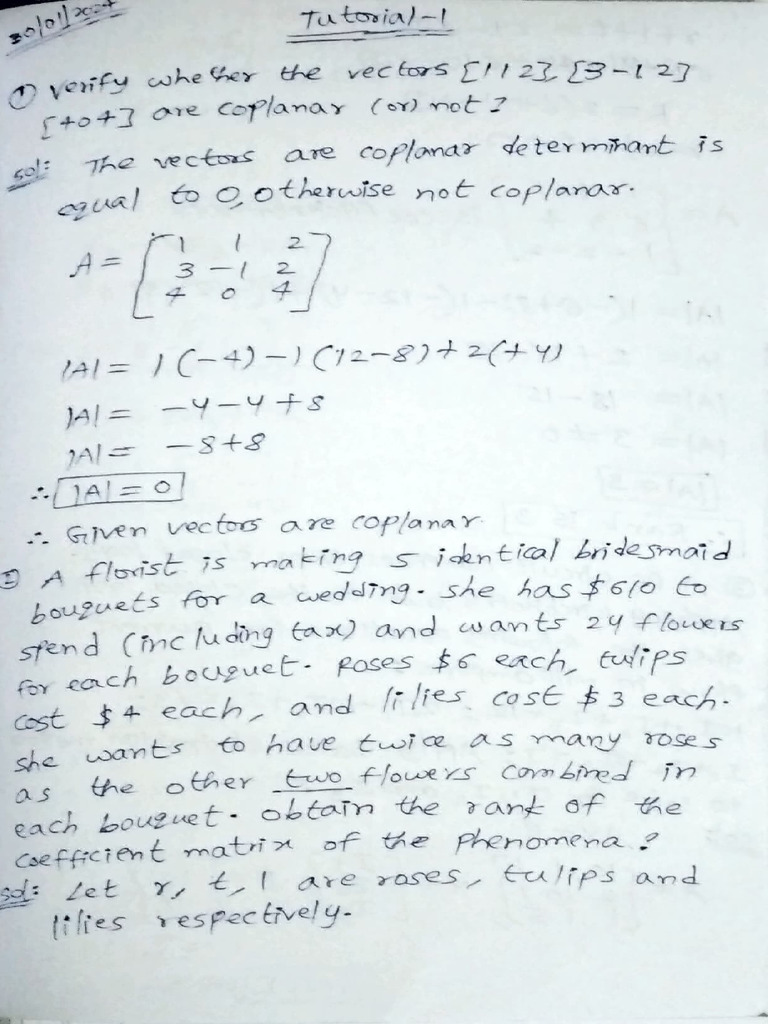 30/01/2024
Tutorial-1
① Verify whether the vectors [1 1 2], [3 -1 2]
[4 0 4] are coplanar (or) not?
sol: The vectors are coplanar determinant is
equal to 0, otherwise not coplanar.
A = [ 1 1 2
3 -1 2
4 0 4 ]
|A| = 1(-4) -1(12-8)+2(+4)
|A| = -4-4+8
|A| = -8+8
∴ |A| = 0
∴ Given vectors are coplanar.
② A florist is making 5 identical bridesmaid
bouquets for a wedding. she has $610 to
spend (including tax) and wants 24 flowers
for each bouquet. Roses $6 each, tulips
cost $4 each, and lilies cost $3 each.
she wants to have twice as many roses
as the other two flowers combined in
each bouquet. obtain the rank of the
coefficient matrix of the phenomena?
sol: Let r, t, l are roses, tulips and
lilies respectively.